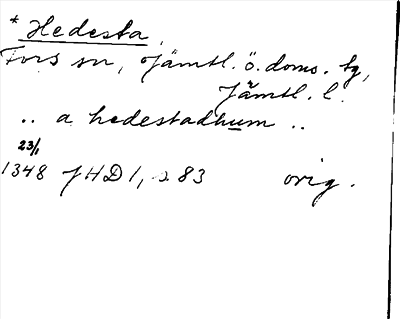 * Hedesta,
Fors sn, Jämtl. ö. doms. tg,
Jämtl. l.
.. a hedestadhum ..
23/1
1348 JHD 1, s 83 orig.